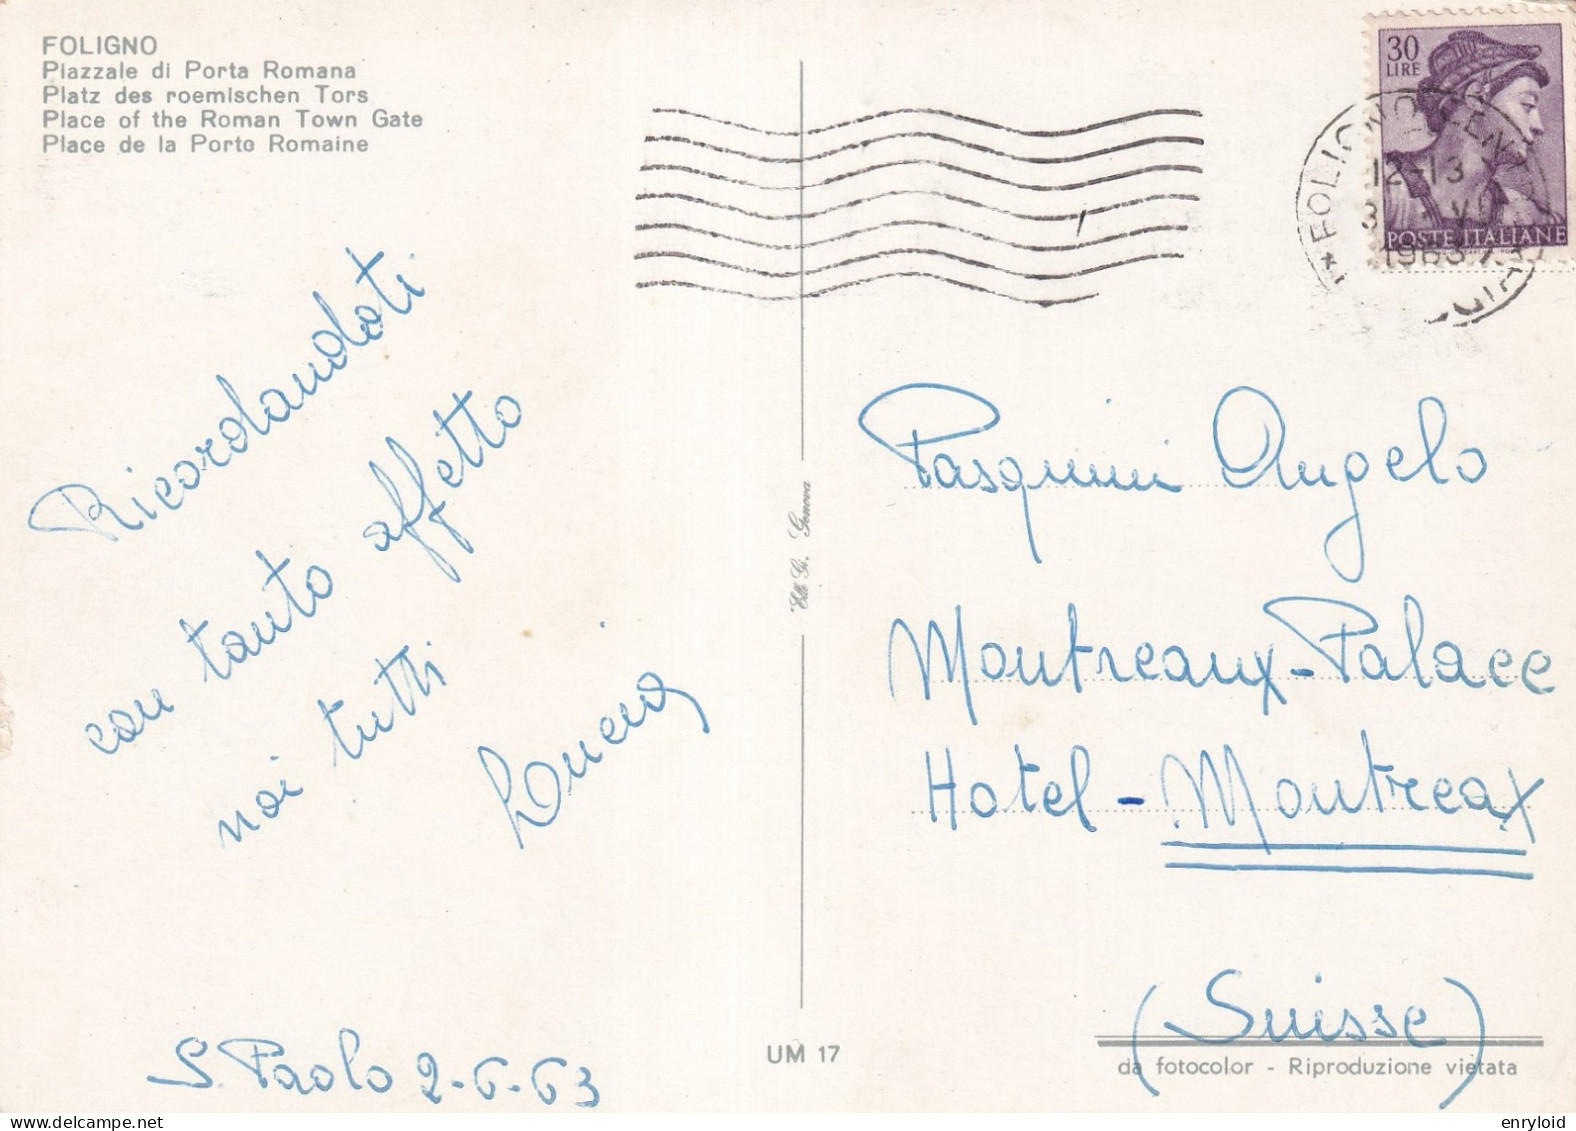 FOLIGNO
Piazzale di Porta Romana
Platz des roemischen Tors
Place of the Roman Town Gate
Place de la Porte Romaine
30
LIRE
POSTE ITALIANE
FOLIGNO CENTRO
12-13
3
1963
Ricordandoti
con tanto affetto
noi tutti
S. Paolo 2-6-63
Edit. Gi. Genova
UM 17
Pasquini Angelo
Montreaux-Palace
Hotel - Montreax
(Suisse)
da fotocolor - Riproduzione vietata
enryloid